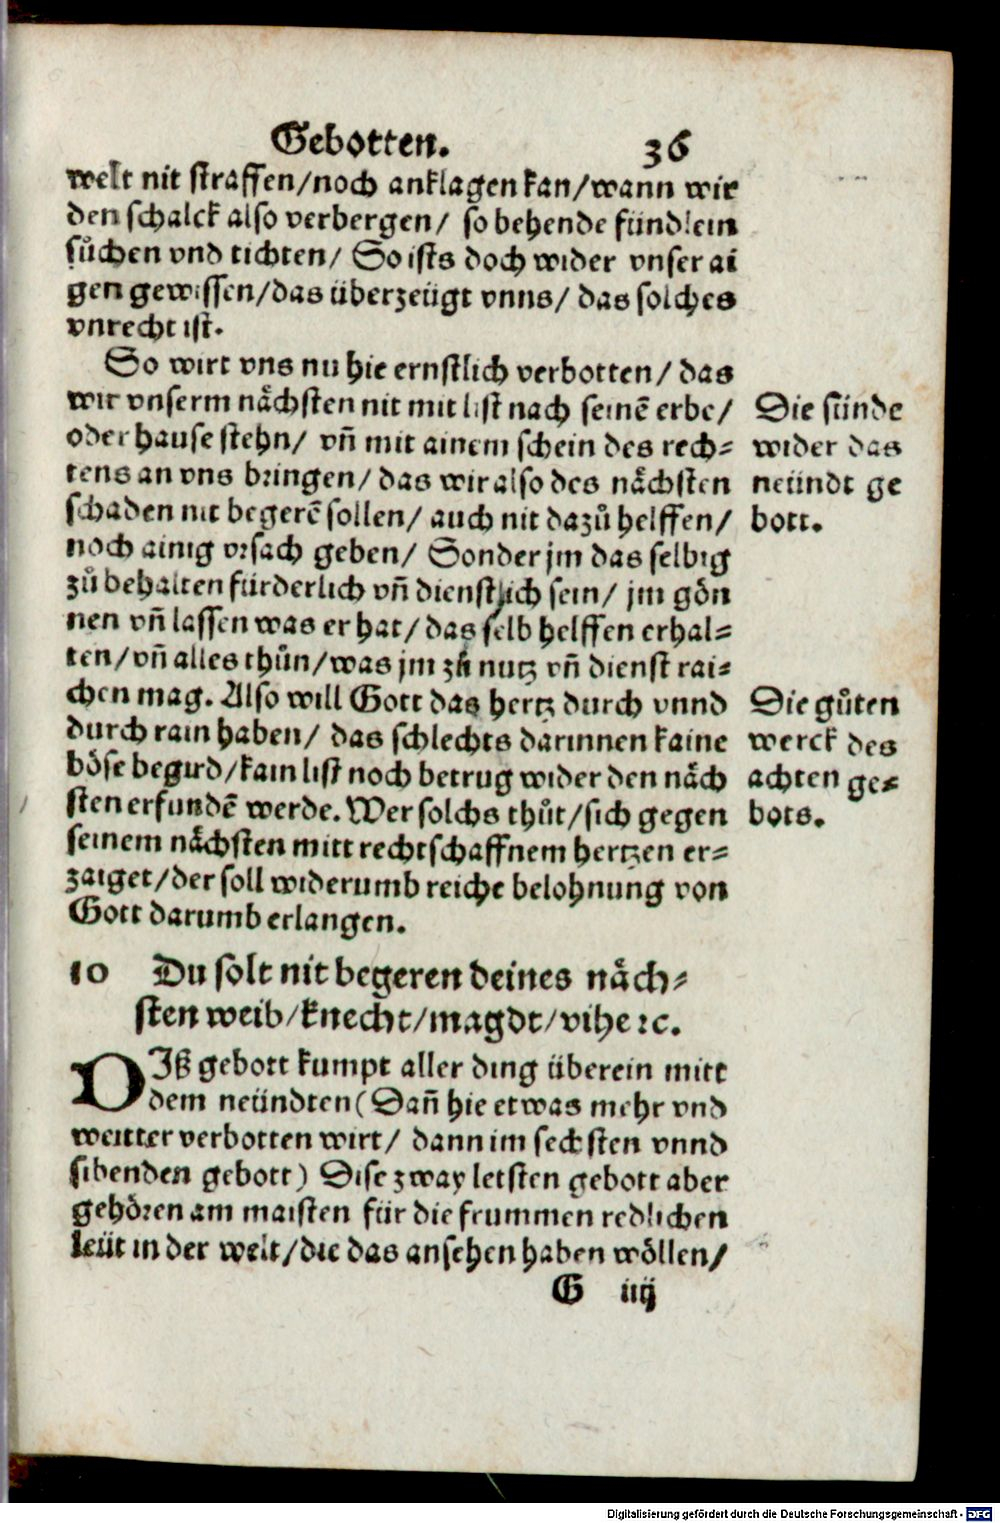 Gebotten. 36
welt nit straffen/noch anklagen kan/wann wir
den schalck also verbergen/ so behende fündlein
sůchen vnd tichten/ So ists doch wider vnser ai
gen gewissen/das überzeügt vnns/ das solches
vnrecht ist.
So wirt vns nu hie ernstlich verbotten/ das
wir vnserm nächsten nit mit list nach seinē erbe/
oder hause stehn/ vñ mit ainem schein des rech-
tens an vns bringen/ das wir also des nächsten
schaden nit begerē sollen/ auch nit dazů helffen/
noch ainig vrsach geben/ Sonder jm das selbig
zů behalten fürderlich vñ dienstlich sein/ jm gön
nen vñ lassen was er hat/ das selb helffen erhal-
ten/vñ alles thůn/was jm zů nutz vñ dienst rai-
chen mag. Also will Gott das hertz durch vnnd
durch rain haben/ das schlechts darinnen kaine
böse begird/kain list noch betrug wider den näch
sten erfundē werde. Wer solchs thůt/sich gegen
seinem nächsten mitt rechtschaffnem hertzen er-
zaiget/der soll widerumb reiche belohnung von
Gott darumb erlangen.
Die sünde
wider das
neündt ge
bott.
Die gůten
werck des
achten ge-
bots.
10 Du solt nit begeren deines näch-
sten weib/knecht/magdt/vihe ꝛc.
DIß gebott kumpt aller ding überein mitt
dem neündten (Dañ hie etwas mehr vnd
weitter verbotten wirt/ dann im sechsten vnnd
sibenden gebott) Dise zway letsten gebott aber
gehören am maisten für die frummen redlichen
leüt in der welt/die das ansehen haben wöllen/
G iiij
Digitalisierung gefördert durch die Deutsche Forschungsgemeinschaft - DFG